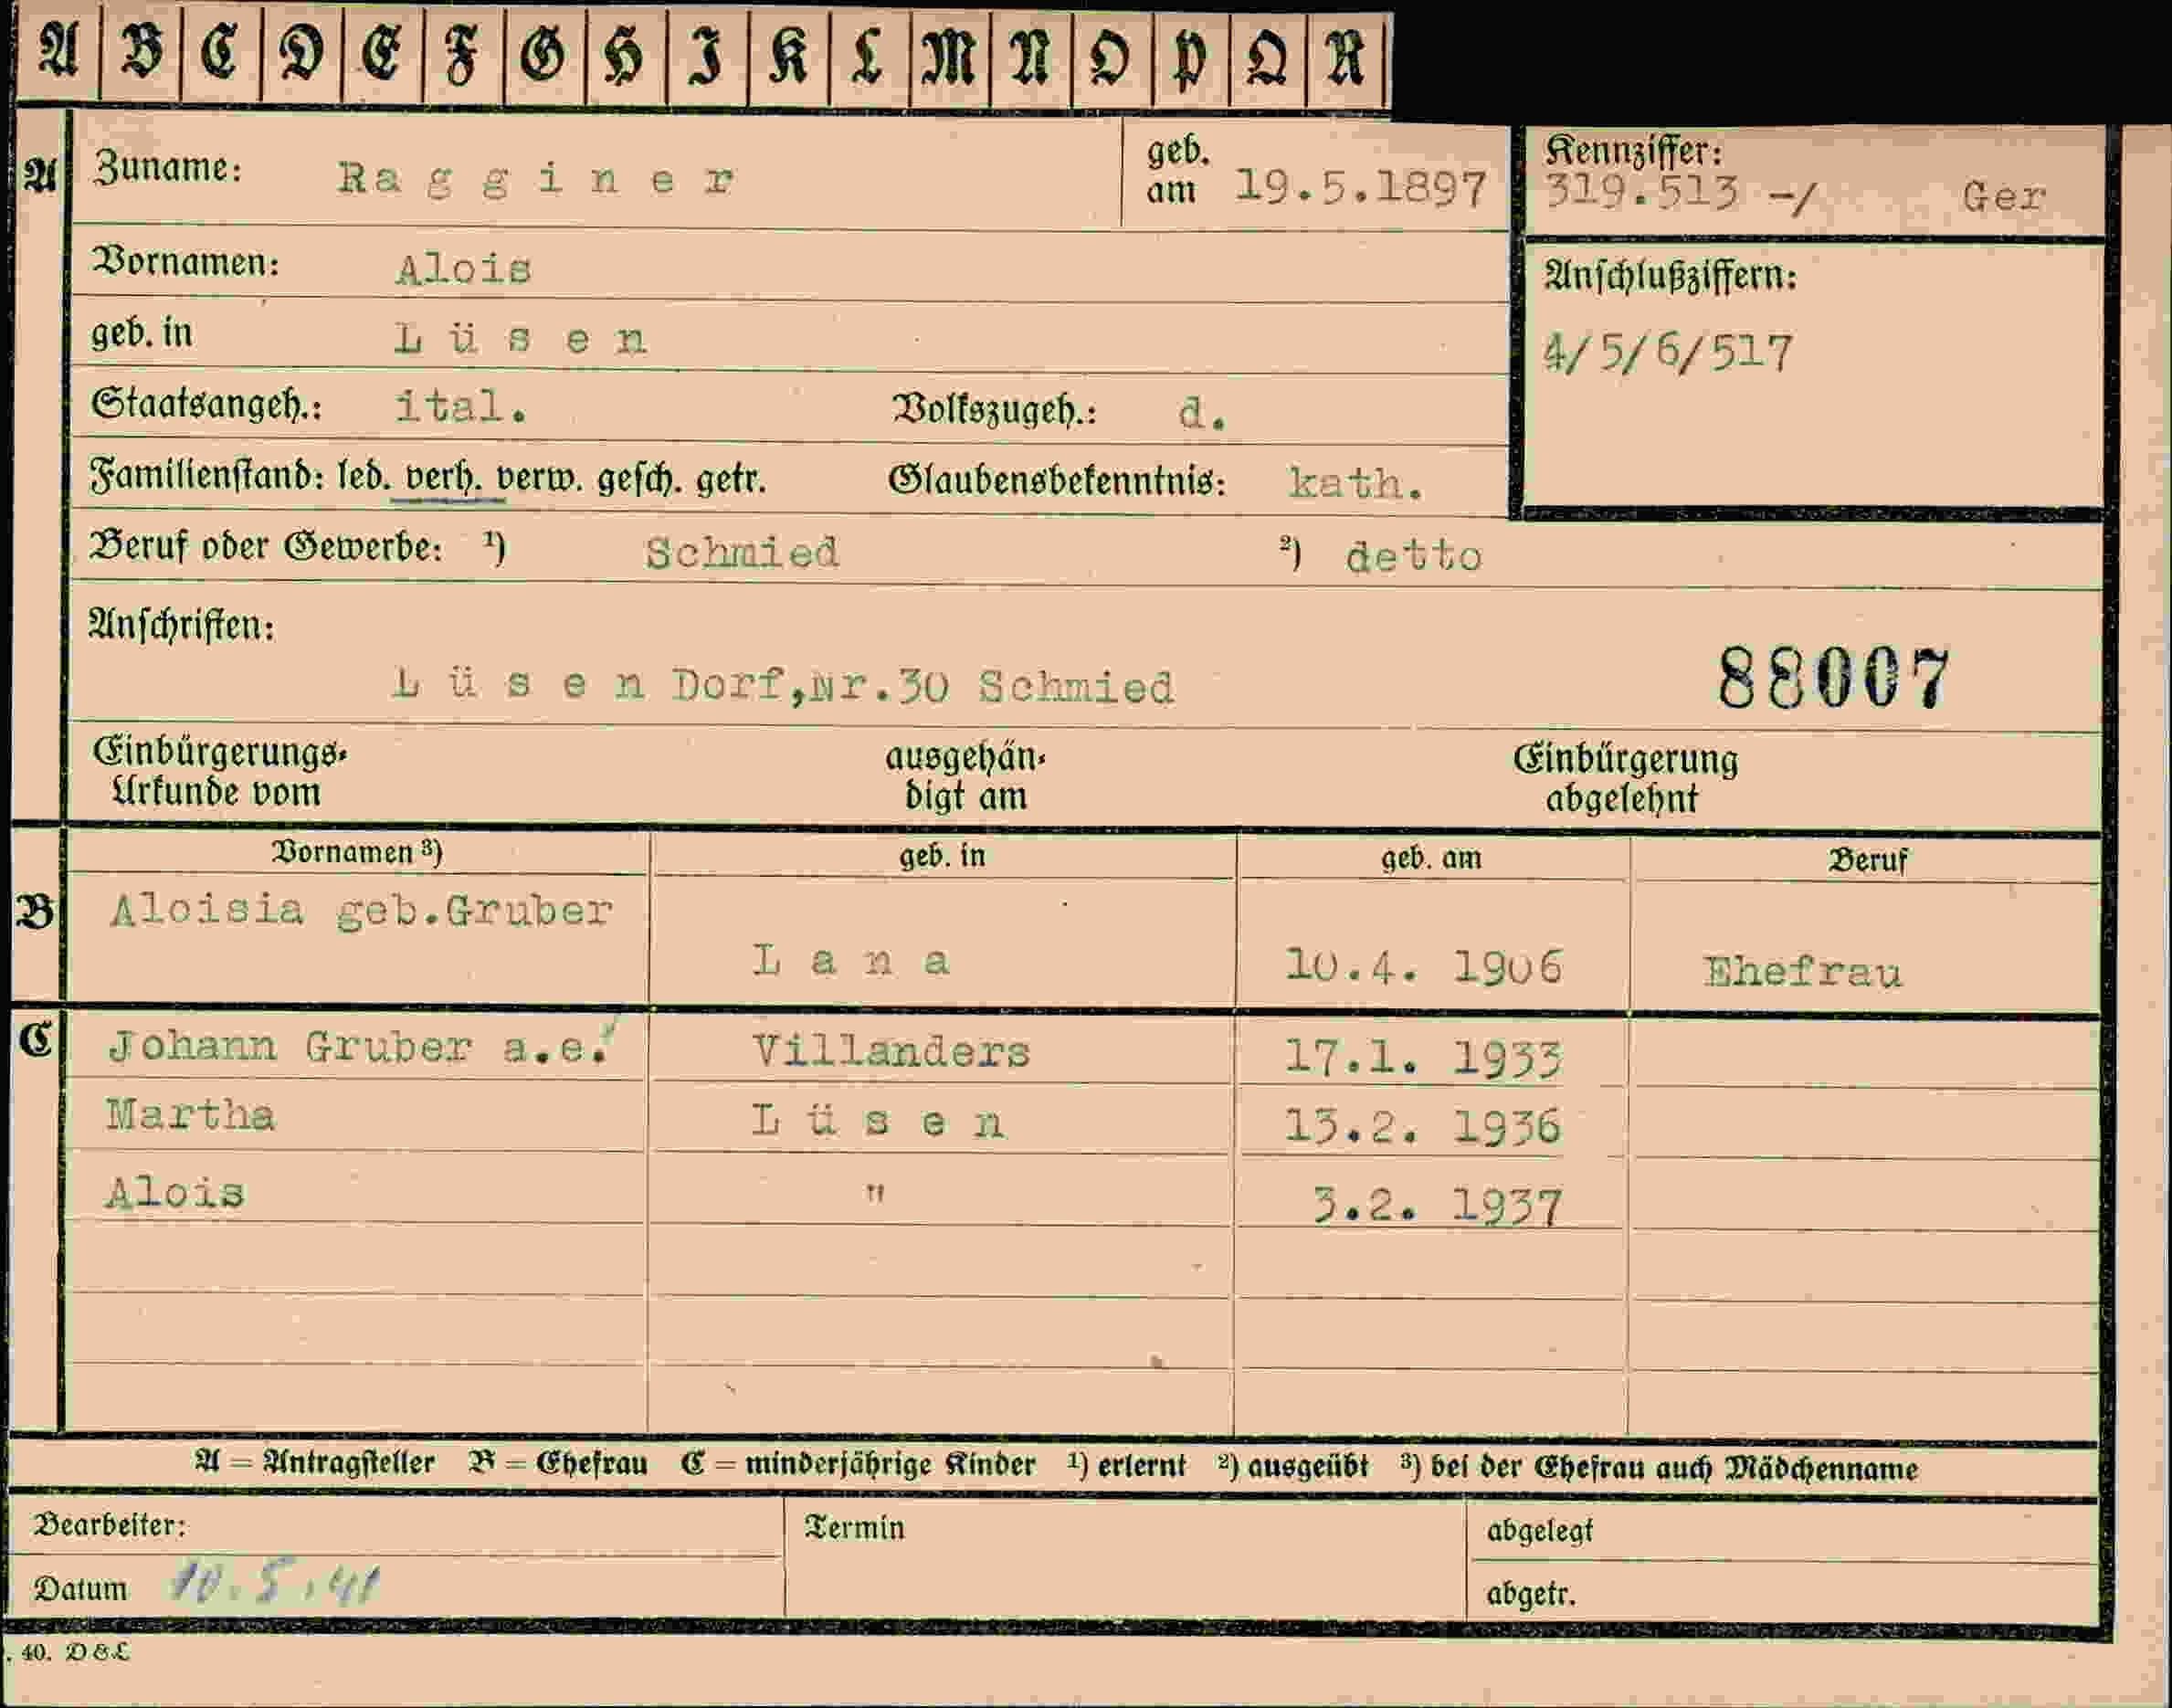 A B C D E F G H I K L M N O P Q R
A Zuname: Ragginer geb. am 19.5.1897 Kennziffer: 319.513 -/ Ger
Vornamen: Alois
Anschlußziffern:
geb. in Lüsen
4/5/6/517
Staatsangeh.: ital. Volkszugeh.: d.
Familienstand: led. verh. verw. gesch. getr. Glaubensbekenntnis: kath.
Beruf oder Gewerbe: ¹) Schmied ²) detto
Anschriften:
Lüsen Dorf,Nr.30 Schmied 88007
Einbürgerungs- ausgehän- Einbürgerung
Urkunde vom digt am abgelehnt
Vornamen ³) geb. in geb. am Beruf
B Aloisia geb.Gruber
Lana 10.4. 1906 Ehefrau
C Johann Gruber a.e. Villanders 17.1. 1933
Martha Lüsen 13.2. 1936
Alois " 3.2. 1937
A = Antragsteller B = Ehefrau C = minderjährige Kinder ¹) erlernt ²) ausgeübt ³) bei der Ehefrau auch Mädchenname
Bearbeiter: Termin abgelegt
Datum 10.5.41 abgetr.
. 40. D & L